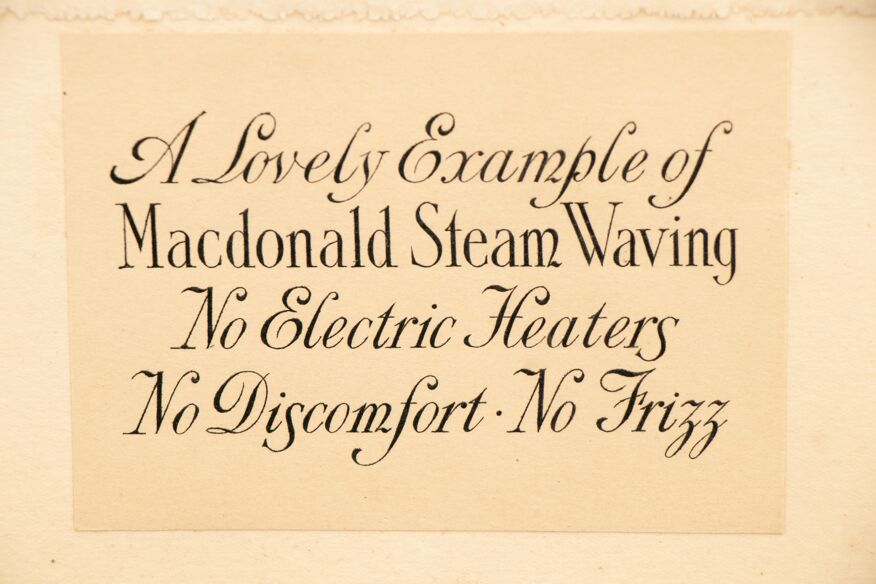 A Lovely Example of
Macdonald Steam Waving
No Electric Heaters
No Discomfort · No Frizz